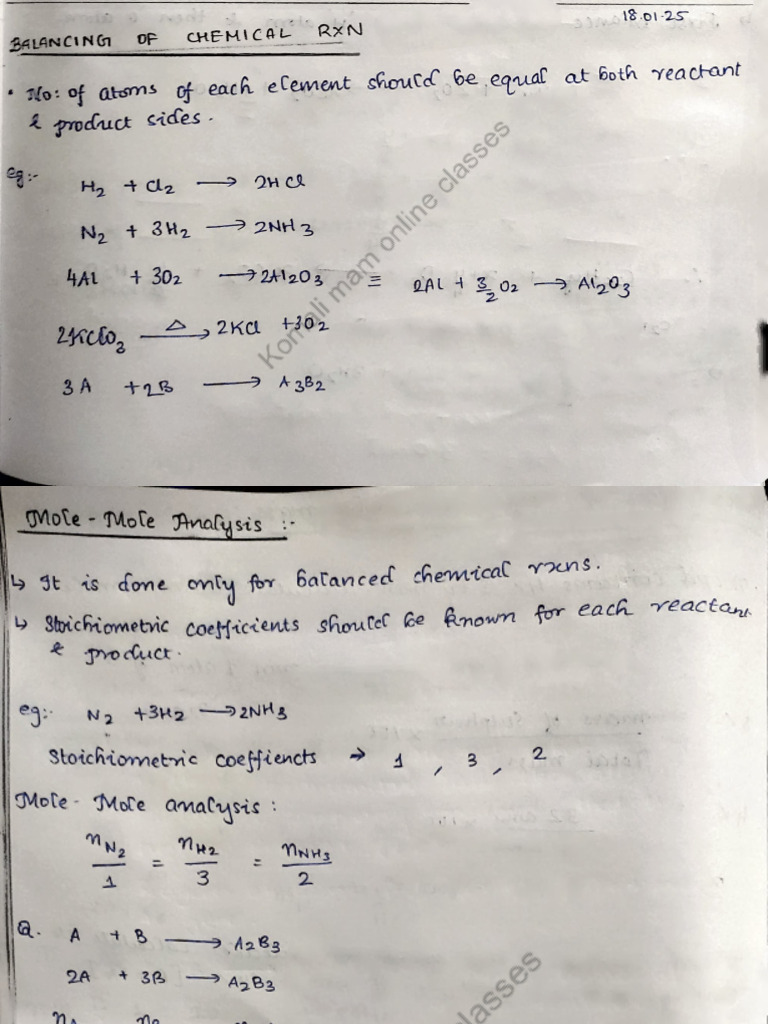 18.01.25
BALANCING OF CHEMICAL RXN
• No: of atoms of each element should be equal at both reactant
& product sides.
eg:- H2 + Cl2 ⟶ 2HCl
N2 + 3H2 ⟶ 2NH3
4Al + 3O2 ⟶ 2Al2O3 ≡ 2Al + 3/2 O2 ⟶ Al2O3
2KClO3 —Δ⟶ 2KCl + 3O2
3A + 2B ⟶ A3B2
Komali mam online classes
Mole - Mole Analysis :-
↳ It is done only for balanced chemical rxns.
↳ Stoichiometric coefficients should be known for each reactant
& product.
eg:- N2 + 3H2 ⟶ 2NH3
Stoichiometric coeffiencts → 1 , 3 , 2
Mole - Mole analysis :
nN2/1 = nH2/3 = nNH3/2
Q. A + B ⟶ A2B3
2A + 3B ⟶ A2B3
classes